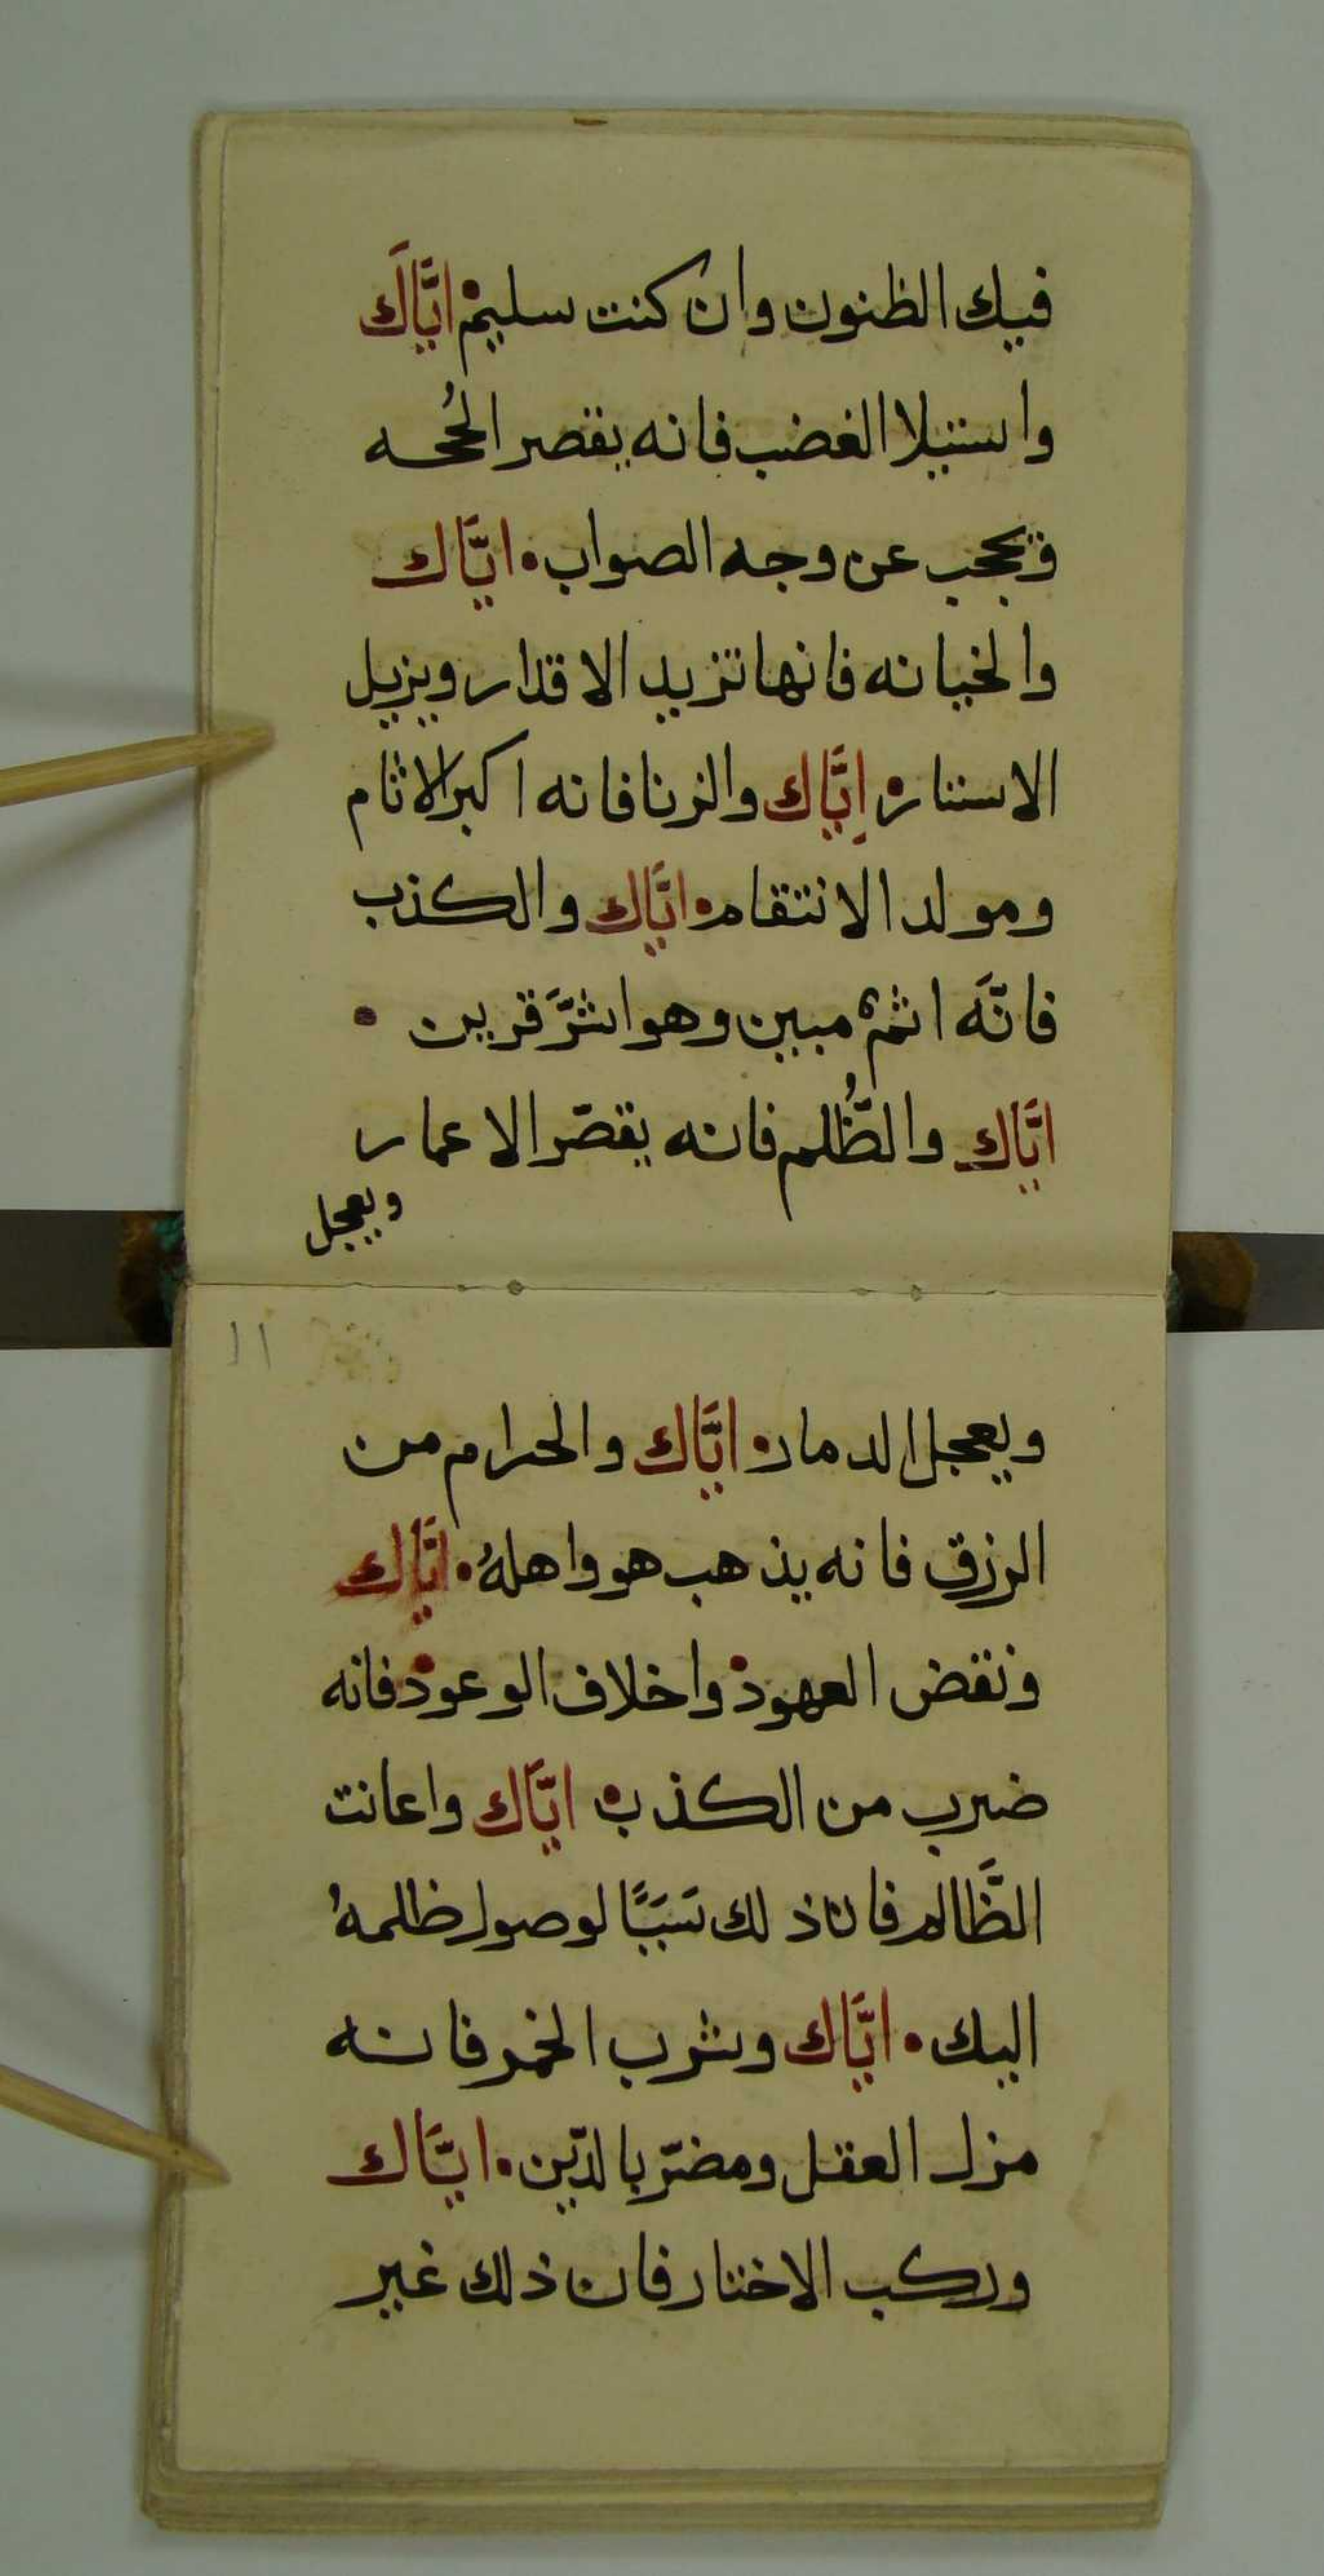 فيك الظنون وان كنت سليم • ايَّاكَ
واستيلا الغضب فانه يقصر الحُجه
ويحجب عن وجه الصواب • ايَّاك
والخيانه فانها تزيد الاقدار ويزيل
الاستار • اِيَّاك والزنا فانه اكبر الاثام
ومولد الانتقام • ايَّاك والكذب
فانَّه اثمٌ مبين وهو اشرَّ قرين •
ايَّاك والظُّلم فانه يقصّر الاعمار
ويعجل
11
ويعجل الدمار • ايَّاك والحرام من
الرزق فانه يذهب هو واهلهُ • ايَّاك
ونقض العهود • واخلاف الوعود • فانه
ضرب من الكذب • ايَّاك واعانت
الظَّالم فان ذلك سَبَبًا لوصول ظلمهُ
اليك • ايَّاك وشرب الخمر فانه
مزل العقل ومضرّ بالدّين • ايَّاك
وركب الاختار فان ذلك غير